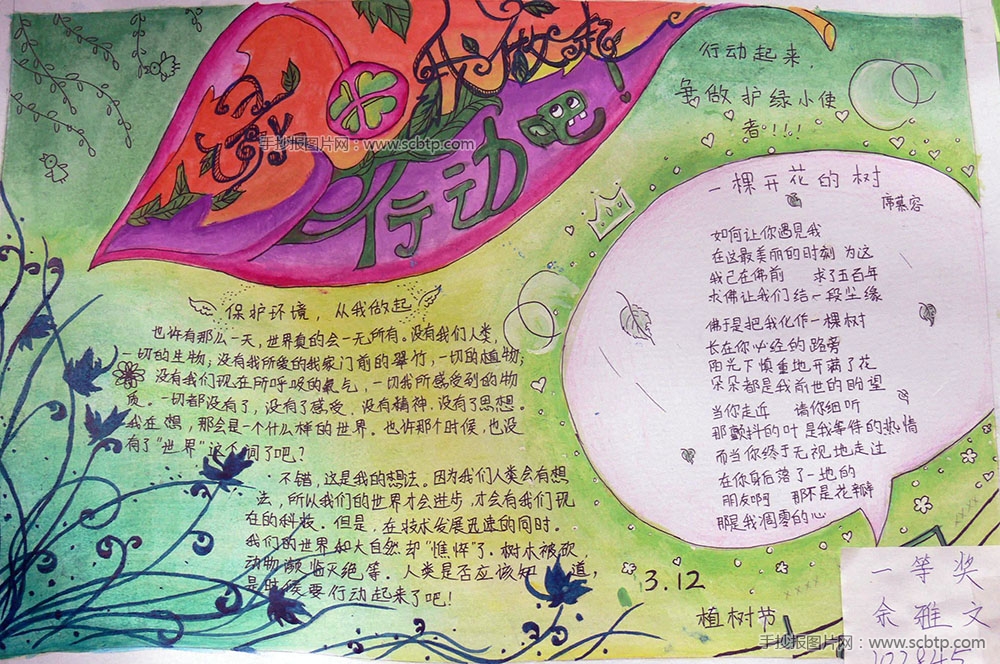 从我做起
行动
手抄报图片网：www.scbtp.com
行动起来，
争做护绿小使
者!!!
一棵开花的树
席慕容
如何让你遇见我
在这最美丽的时刻 为这
我已在佛前 求了五百年
求佛让我们结一段尘缘
佛于是把我化作一棵树
长在你必经的路旁
阳光下慎重地开满了花
朵朵都是我前世的盼望
当你走近 请你细听
那颤抖的叶是我等待的热情
而当你终于无视地走过
在你身后落了一地的
朋友啊 那不是花瓣
那是我凋零的心
保护环境，从我做起
也许有那么一天，世界真的会一无所有。没有我们人类，
一切的生物；没有我所爱的我家门前的翠竹，一切的植物；
没有我们现在所呼吸的氧气，一切我所感受到的物
质。一切都没有了，没有了感受，没有精神，没有了思想。
我在想，那会是一个什么样的世界。也许那个时候，也没
有了“世界”这个词了吧？
不错，这是我的想法。因为我们人类会有想
法，所以我们的世界才会进步，才会有我们现
在的科技。但是，在技术发展迅速的同时。
我们的世界和大自然却“憔悴”了。树木被砍，
动物濒临灭绝等。人类是否应该知道，
是时候要行动起来了吧！
3.12
植树节
一等奖
余雅文
手抄报图片网：www.scbtp.com